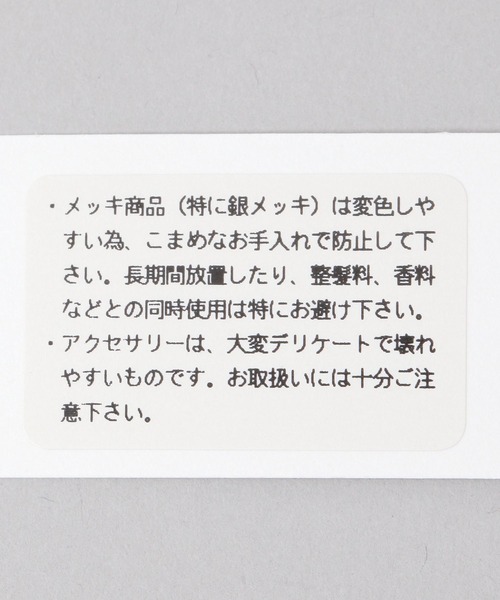 ・メッキ商品（特に銀メッキ）は変色しや
すい為、こまめなお手入れで防止して下
さい。長期間放置したり、整髪料、香料
などとの同時使用は特にお避け下さい。
・アクセサリーは、大変デリケートで壊れ
やすいものです。お取扱いには十分ご注
意下さい。